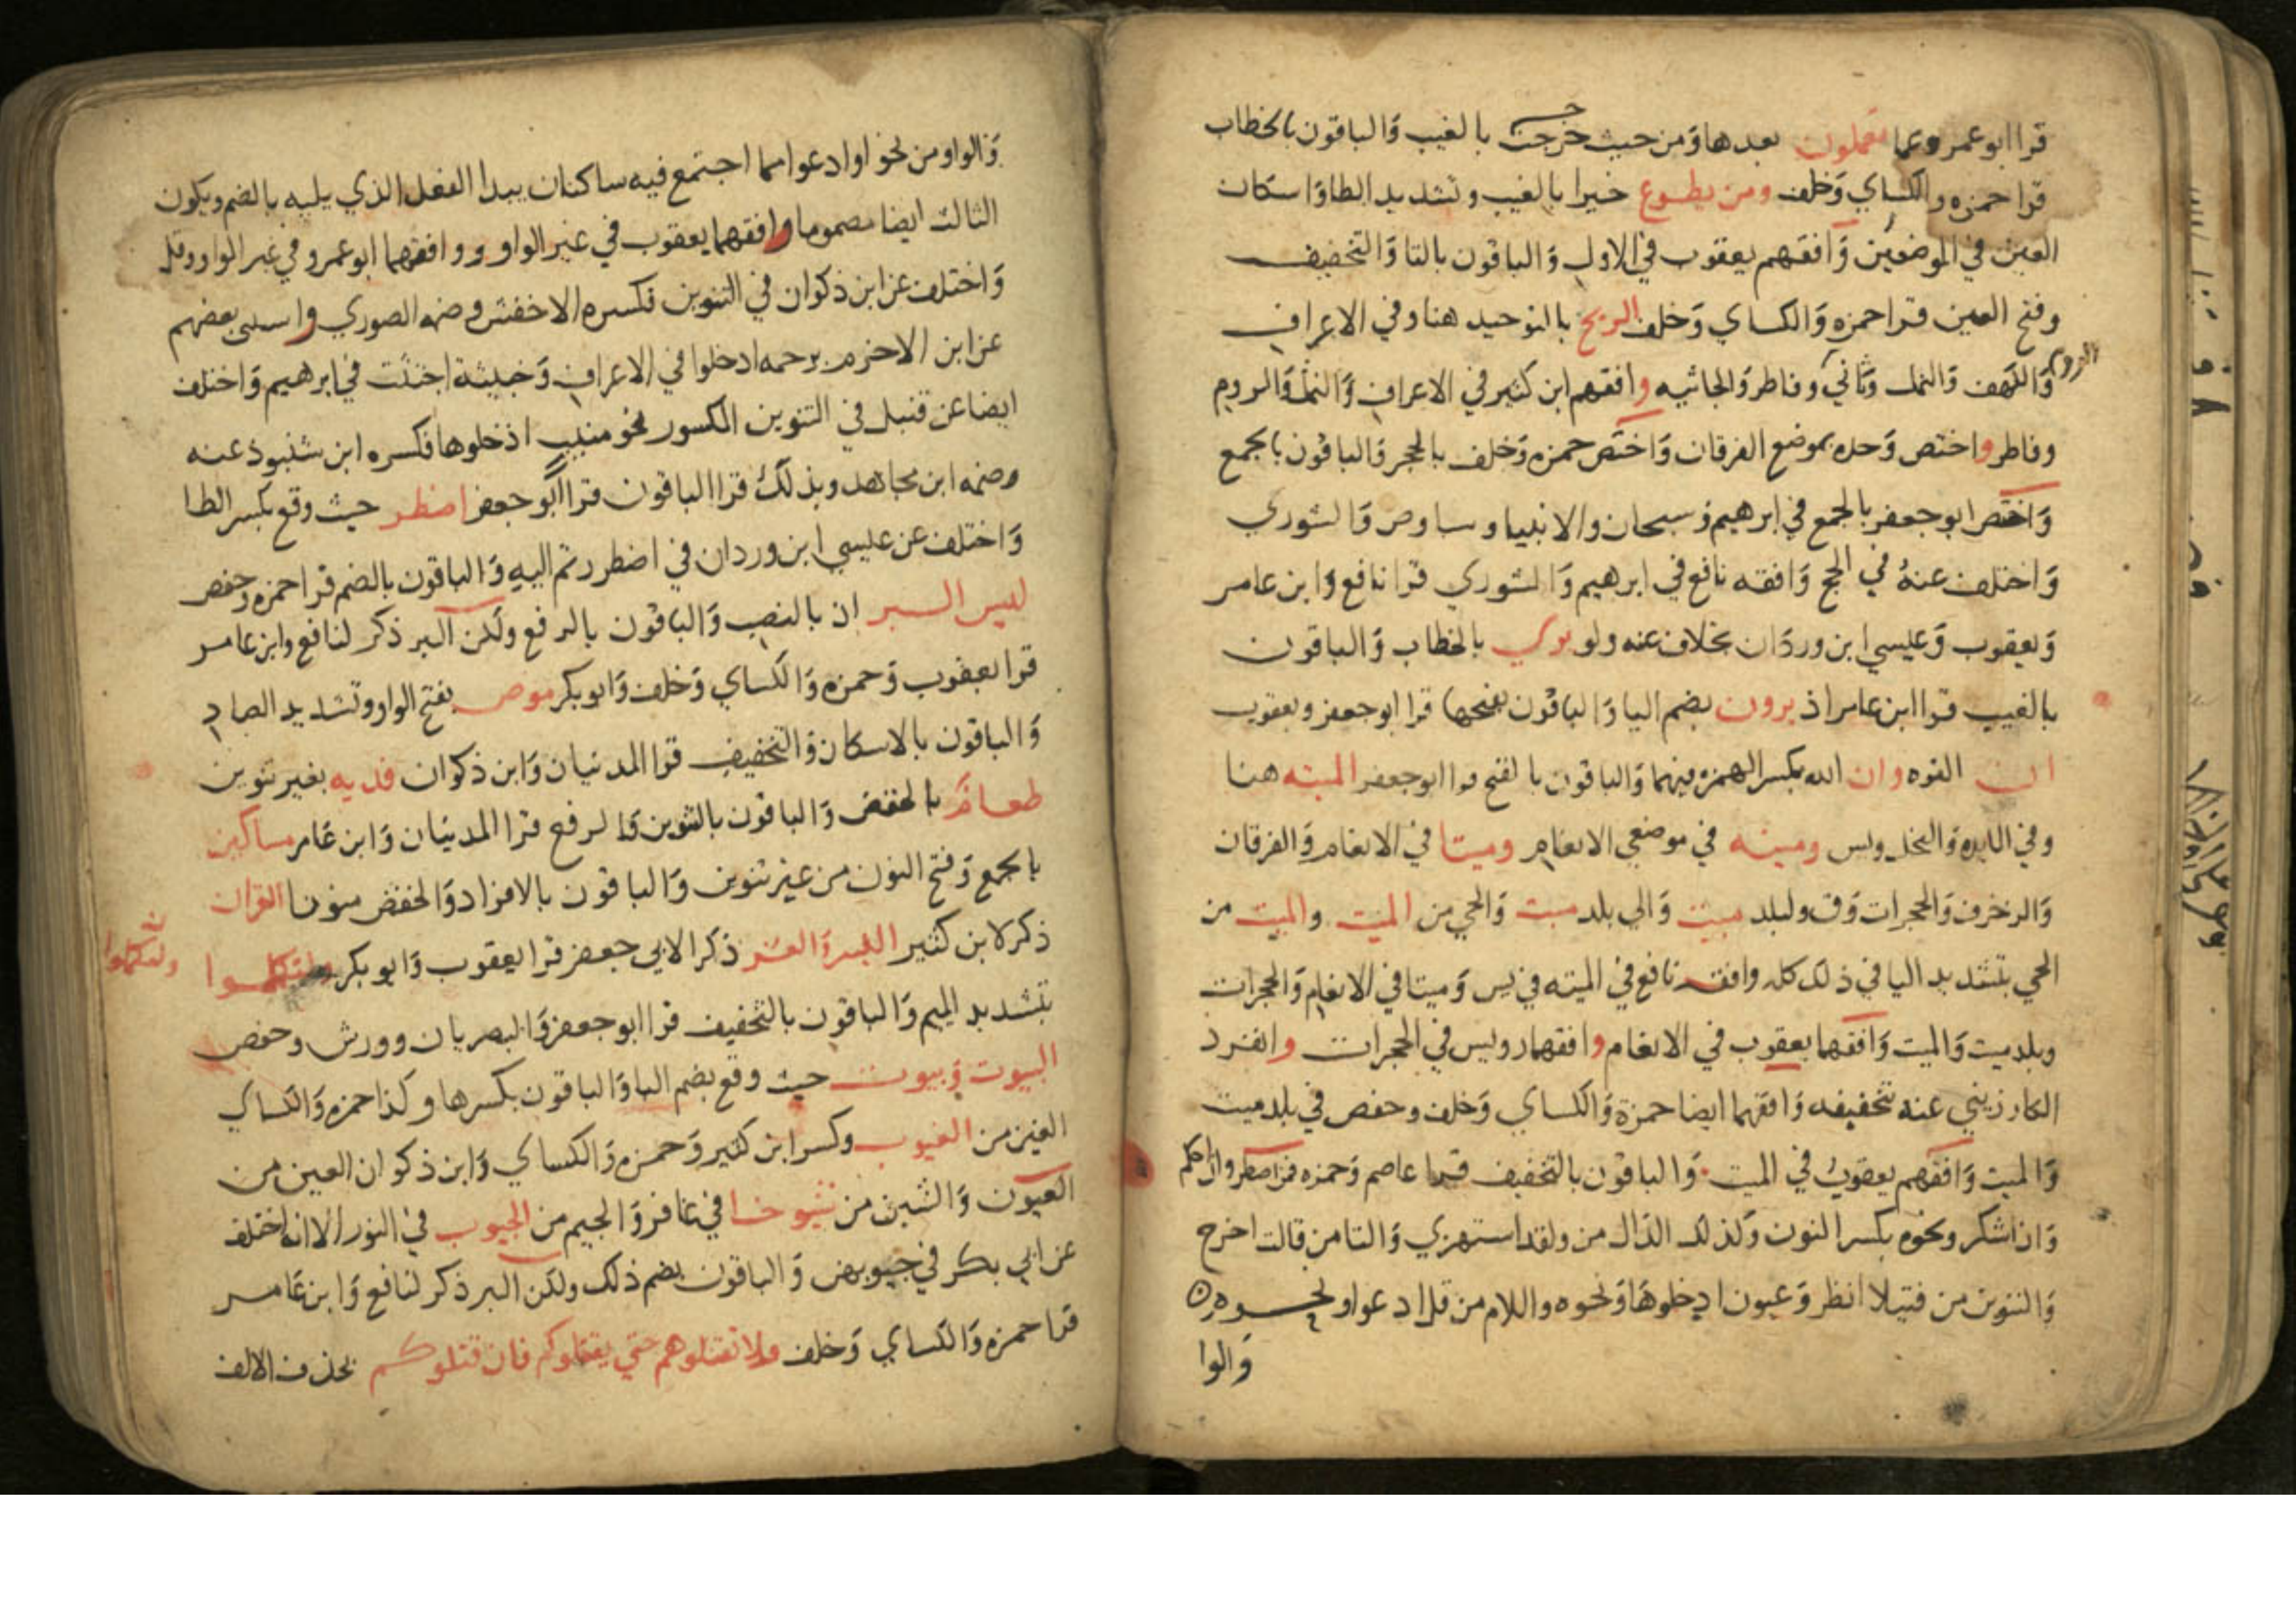 قرا ابو عمرو عما يعملون بعدها ومن حيث خرجت بالغيب والباقون بالخطاب
قرا حمزه والكساي وخلف ومن يطوع خيرا بالغيب وتشديد الطا واسكان
العين في الموضعين وافقهم يعقوب في الاول والباقون بالتا والتخفيف
وفتح العين قرا حمزه والكساي وخلف الريح بالتوحيد هنا وفي الاعراف
والكهف والنمل وثاني الروم وفاطر والجاثيه وافقهم ابن كثير في الاعراف والنمل والروم
وفاطر واختص وحده بموضع الفرقان واختص حمزه وخلف بالحجر والباقون بالجمع
واختص ابو جعفر بالجمع في ابرهيم وسبحان والانبيا وسبا وص والشوري
واختلف عنه في الحج وافقه نافع في ابرهيم والشوري قرا نافع وابن عامر
ويعقوب وعيسي ابن وردان بخلاف عنه ولو تري بالخطاب والباقون
بالغيب قرا ابن عامر اذ يرون بضم اليا والباقون بفتحها قرا ابو جعفر ويعقوب
ان القوه وان الله بكسر الهمزه فيهما والباقون بالفتح قرا ابو جعفر الميته هنا
وفي المايده والنحل ويس وميته في موضعي الانعام وميتا في الانعام والفرقان
والزخرف والحجرات وق ولبلد ميت والي بلد ميت والحي من الميت والميت من
الحي بتشديد اليا في ذلك كله وافقه نافع في الميته في يس وميتا في الانعام والحجرات
وبلد ميت والميت وافقهما يعقوب في الانعام وافقهما رويس في الحجرات وانفرد
الكارزيني عنه بتخفيفه وافقهما ايضا حمزة والكساي وخلف وحفص في بلد ميت
والميت وافقهم يعقوب في الميت والباقون بالتخفيف قرا عاصم وحمزه فمن اضطر وان احكم
وان اشكر ونحوه بكسر النون وكذلك الدال من ولقد استهزي والتا من قالت اخرج
والتنوين من فتيلا انظر وعيون ادخلوها ونحوه واللام من قل ادعوا ونحوه
والوا
والواو من نحو او ادعوا مما اجتمع فيه ساكنان يبدا الفعل الذي يليه بالضم ويكون
الثالث ايضا مضموما وافقهما يعقوب في غير الواو ووافقهما ابو عمرو في غير الواو وقل
واختلف عن ابن ذكوان في التنوين فكسره الاخفش وضمه الصوري واستثنى بعضهم
عن ابن الاخرم برحمه ادخلوا في الاعراف وخبيثة اجتثت في ابرهيم واختلف
ايضا عن قنبل في التنوين المكسور نحو منيب ادخلوها فكسره ابن شنبوذ عنه
وضمه ابن مجاهد وبذلك قرا الباقون قرا ابو جعفر اضطر حيث وقع بكسر الطا
واختلف عن عيسي ابن وردان في اضطررتم اليه والباقون بالضم قرا حمزه وحفص
ليس البر ان بالنصب والباقون بالرفع ولكن البر ذكر لنافع وابن عامر
قرا يعقوب وحمزه والكساي وخلف وابو بكر موص بفتح الواو وتشديد الصاد
والباقون بالاسكان والتخفيف قرا المدنيان وابن ذكوان فديه بغير تنوين
طعام بالخفض والباقون بالتنوين والرفع قرا المدنيان وابن عامر مساكين
بالجمع وفتح النون من غير تنوين والباقون بالافراد والخفض منونا القران
ذكر لابن كثير اليسر والعسر ذكرا لابي جعفر قرا يعقوب وابو بكر ولتكملوا
ولتكملوا
بتشديد الميم والباقون بالتخفيف قرا ابو جعفر والبصريان وورش وحفص
البيوت وبيوت حيث وقع بضم البا والباقون بكسرها وكذا حمزه والكساي
الغين من الغيوب وكسر ابن كثير وحمزه والكساي وابن ذكوان العين من
العيون والشين من شيوخا في غافر والجيم من الجيوب في النور الا انه اختلف
عن ابي بكر في جيوبهن والباقون بضم ذلك ولكن البر ذكر لنافع وابن عامر
قرا حمزه والكساي وخلف ولا تقتلوهم حتي يقتلوكم فان قتلوكم بحذف الالف